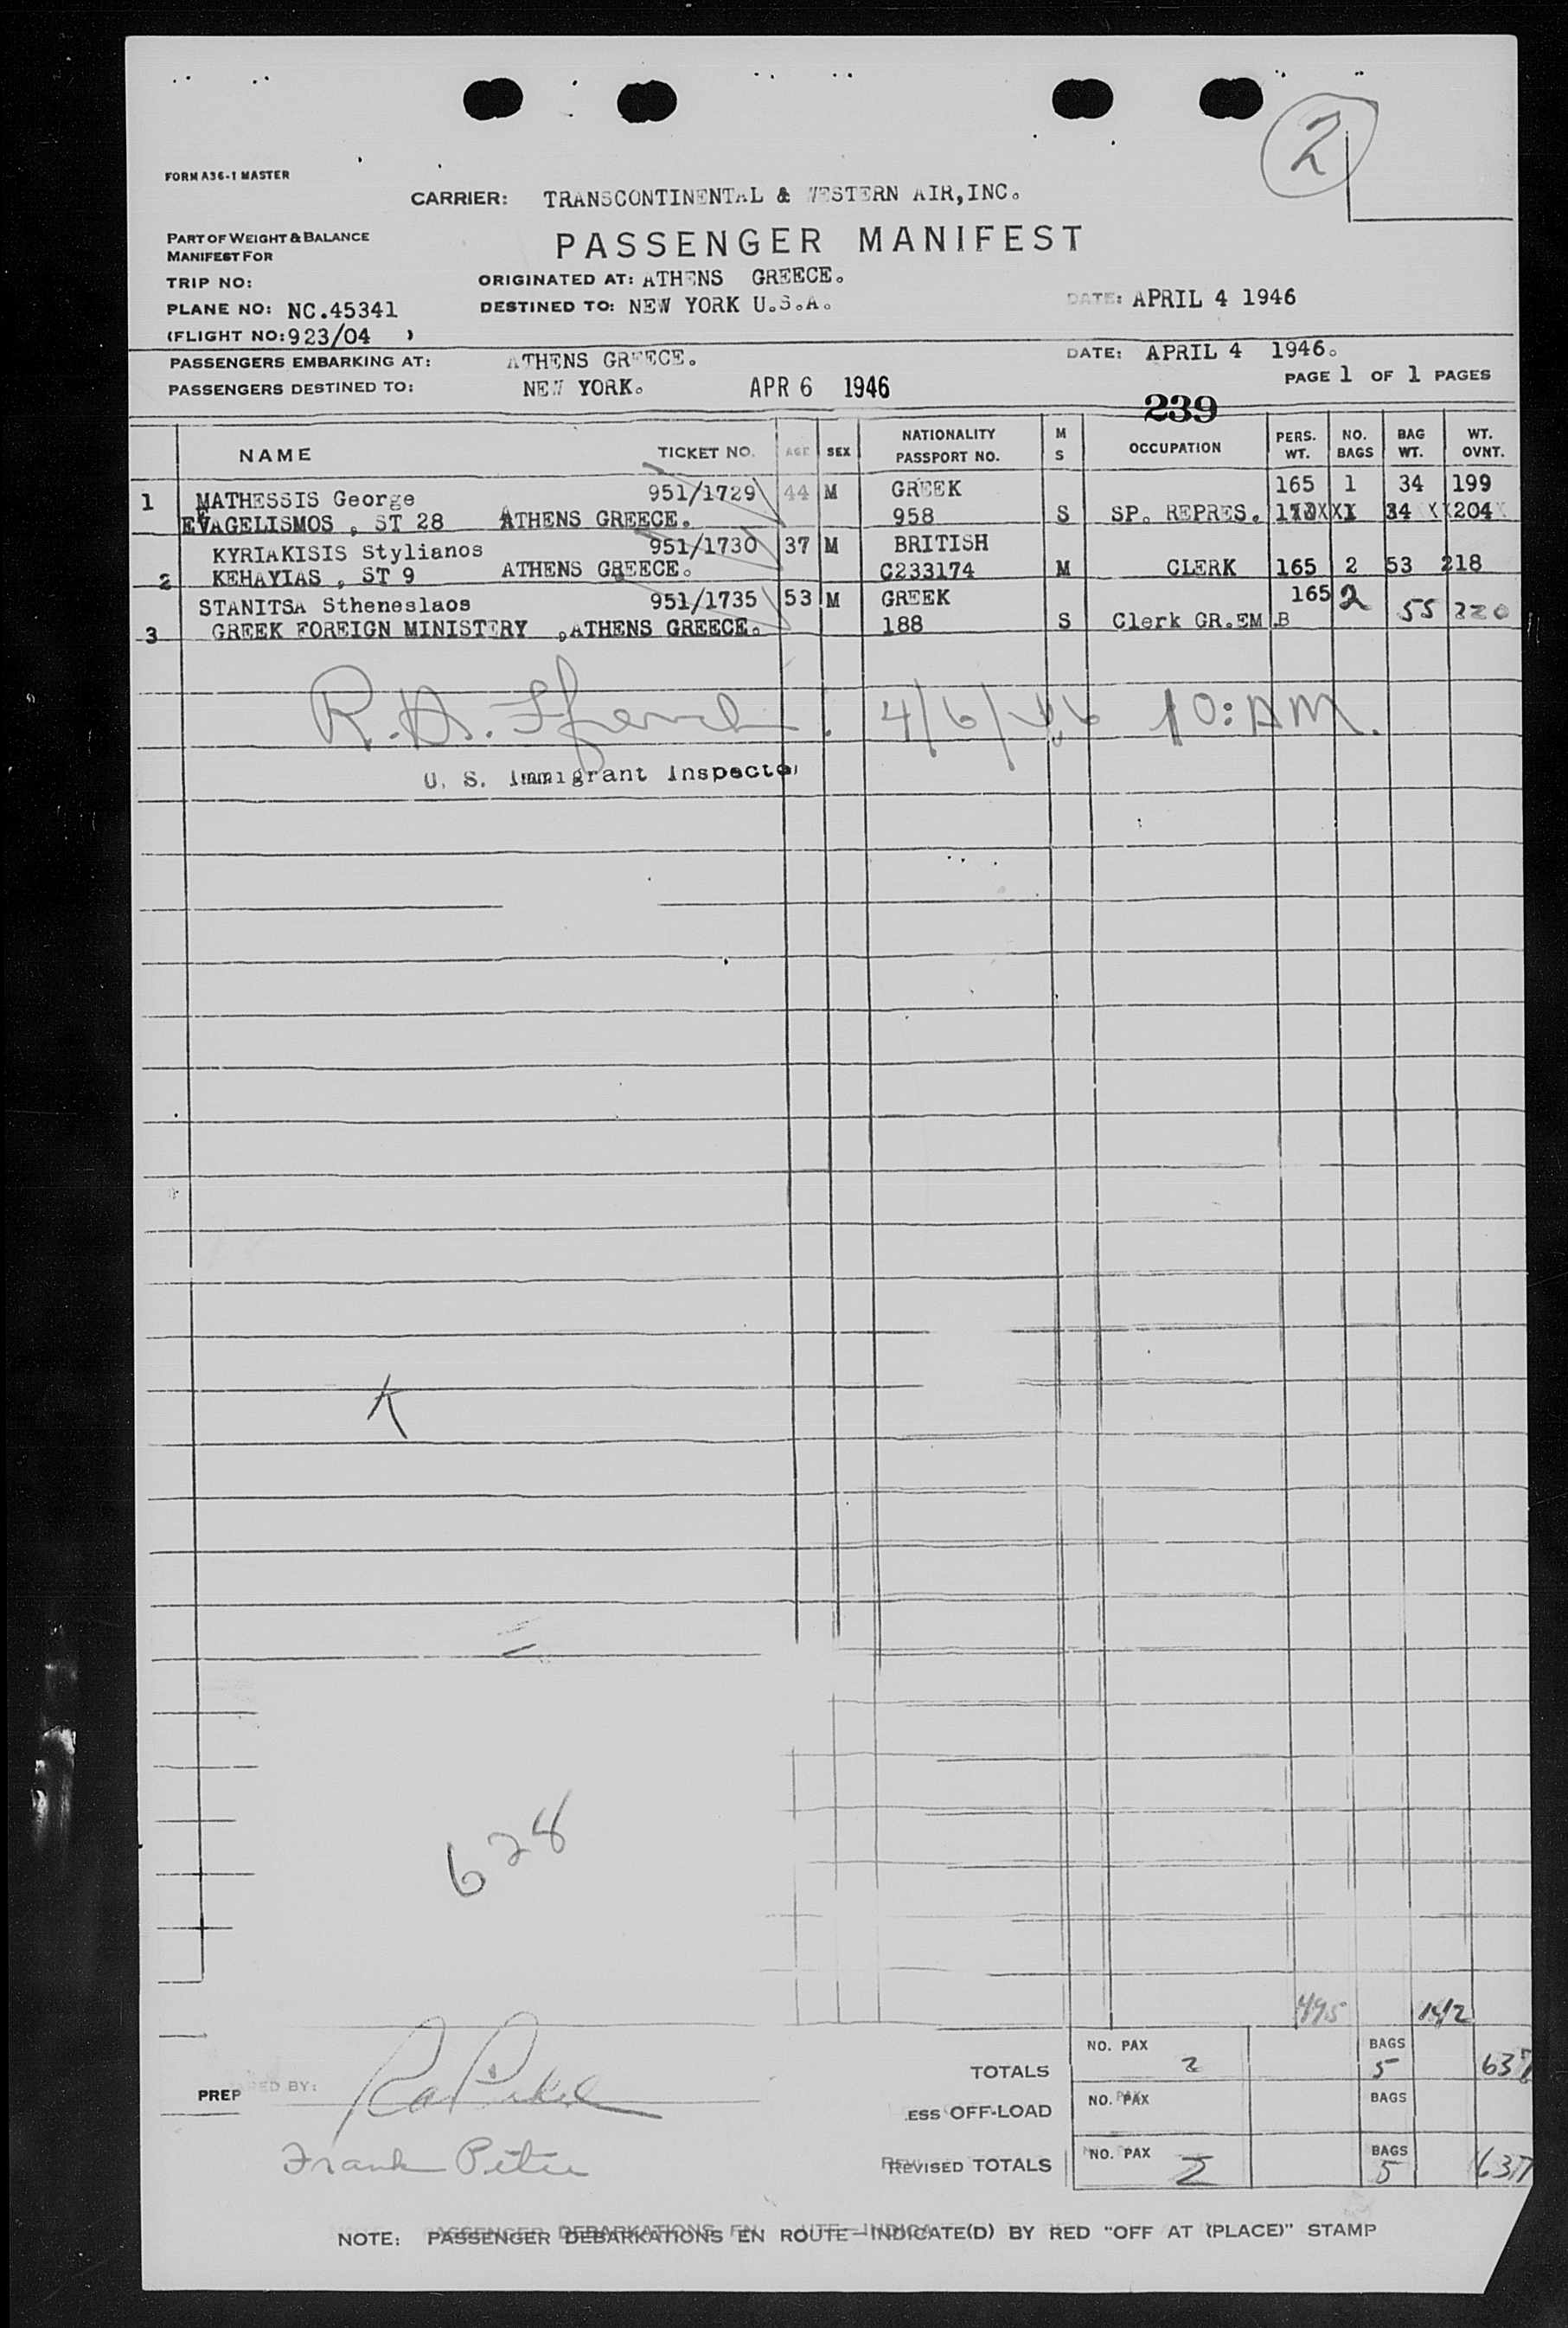 2
FORM A36-1 MASTER
CARRIER: TRANSCONTINENTAL & WESTERN AIR,INC.
PART OF WEIGHT & BALANCE
MANIFEST FOR
PASSENGER MANIFEST
TRIP NO:
ORIGINATED AT: ATHENS GREECE.
PLANE NO: NC.45341
DESTINED TO: NEW YORK U.S.A.
DATE: APRIL 4 1946
(FLIGHT NO: 923/04 )
PASSENGERS EMBARKING AT: ATHENS GREECE.
DATE: APRIL 4 1946.
PASSENGERS DESTINED TO: NEW YORK. APR 6 1946
PAGE 1 OF 1 PAGES
239
NAME TICKET NO. AGE SEX NATIONALITY PASSPORT NO. M S OCCUPATION PERS. WT. NO. BAGS BAG WT. WT. OVNT.
1 MATHESSIS George 951/1729 44 M GREEK 165 1 34 199
EVAGELISMOS , ST 28 ATHENS GREECE. 958 S SP. REPRES. 34 204
KYRIAKISIS Stylianos 951/1730 37 M BRITISH
2 KEHAYIAS , ST 9 ATHENS GREECE. C233174 M CLERK 165 2 53 218
STANITSA Stheneslaos 951/1735 53 M GREEK 165 2 55 220
3 GREEK FOREIGN MINISTERY ,ATHENS GREECE. 188 S Clerk GR.EM.B
R. 4/6/46 10:AM.
U. S. Immigrant Inspector
K
628
495 142
TOTALS NO. PAX 3 BAGS 5 637
PREPARED BY:
LESS OFF-LOAD NO. PAX BAGS
Frank
REVISED TOTALS NO. PAX BAGS 5 637
NOTE: PASSENGER DEBARKATIONS EN ROUTE—INDICATE(D) BY RED "OFF AT (PLACE)" STAMP